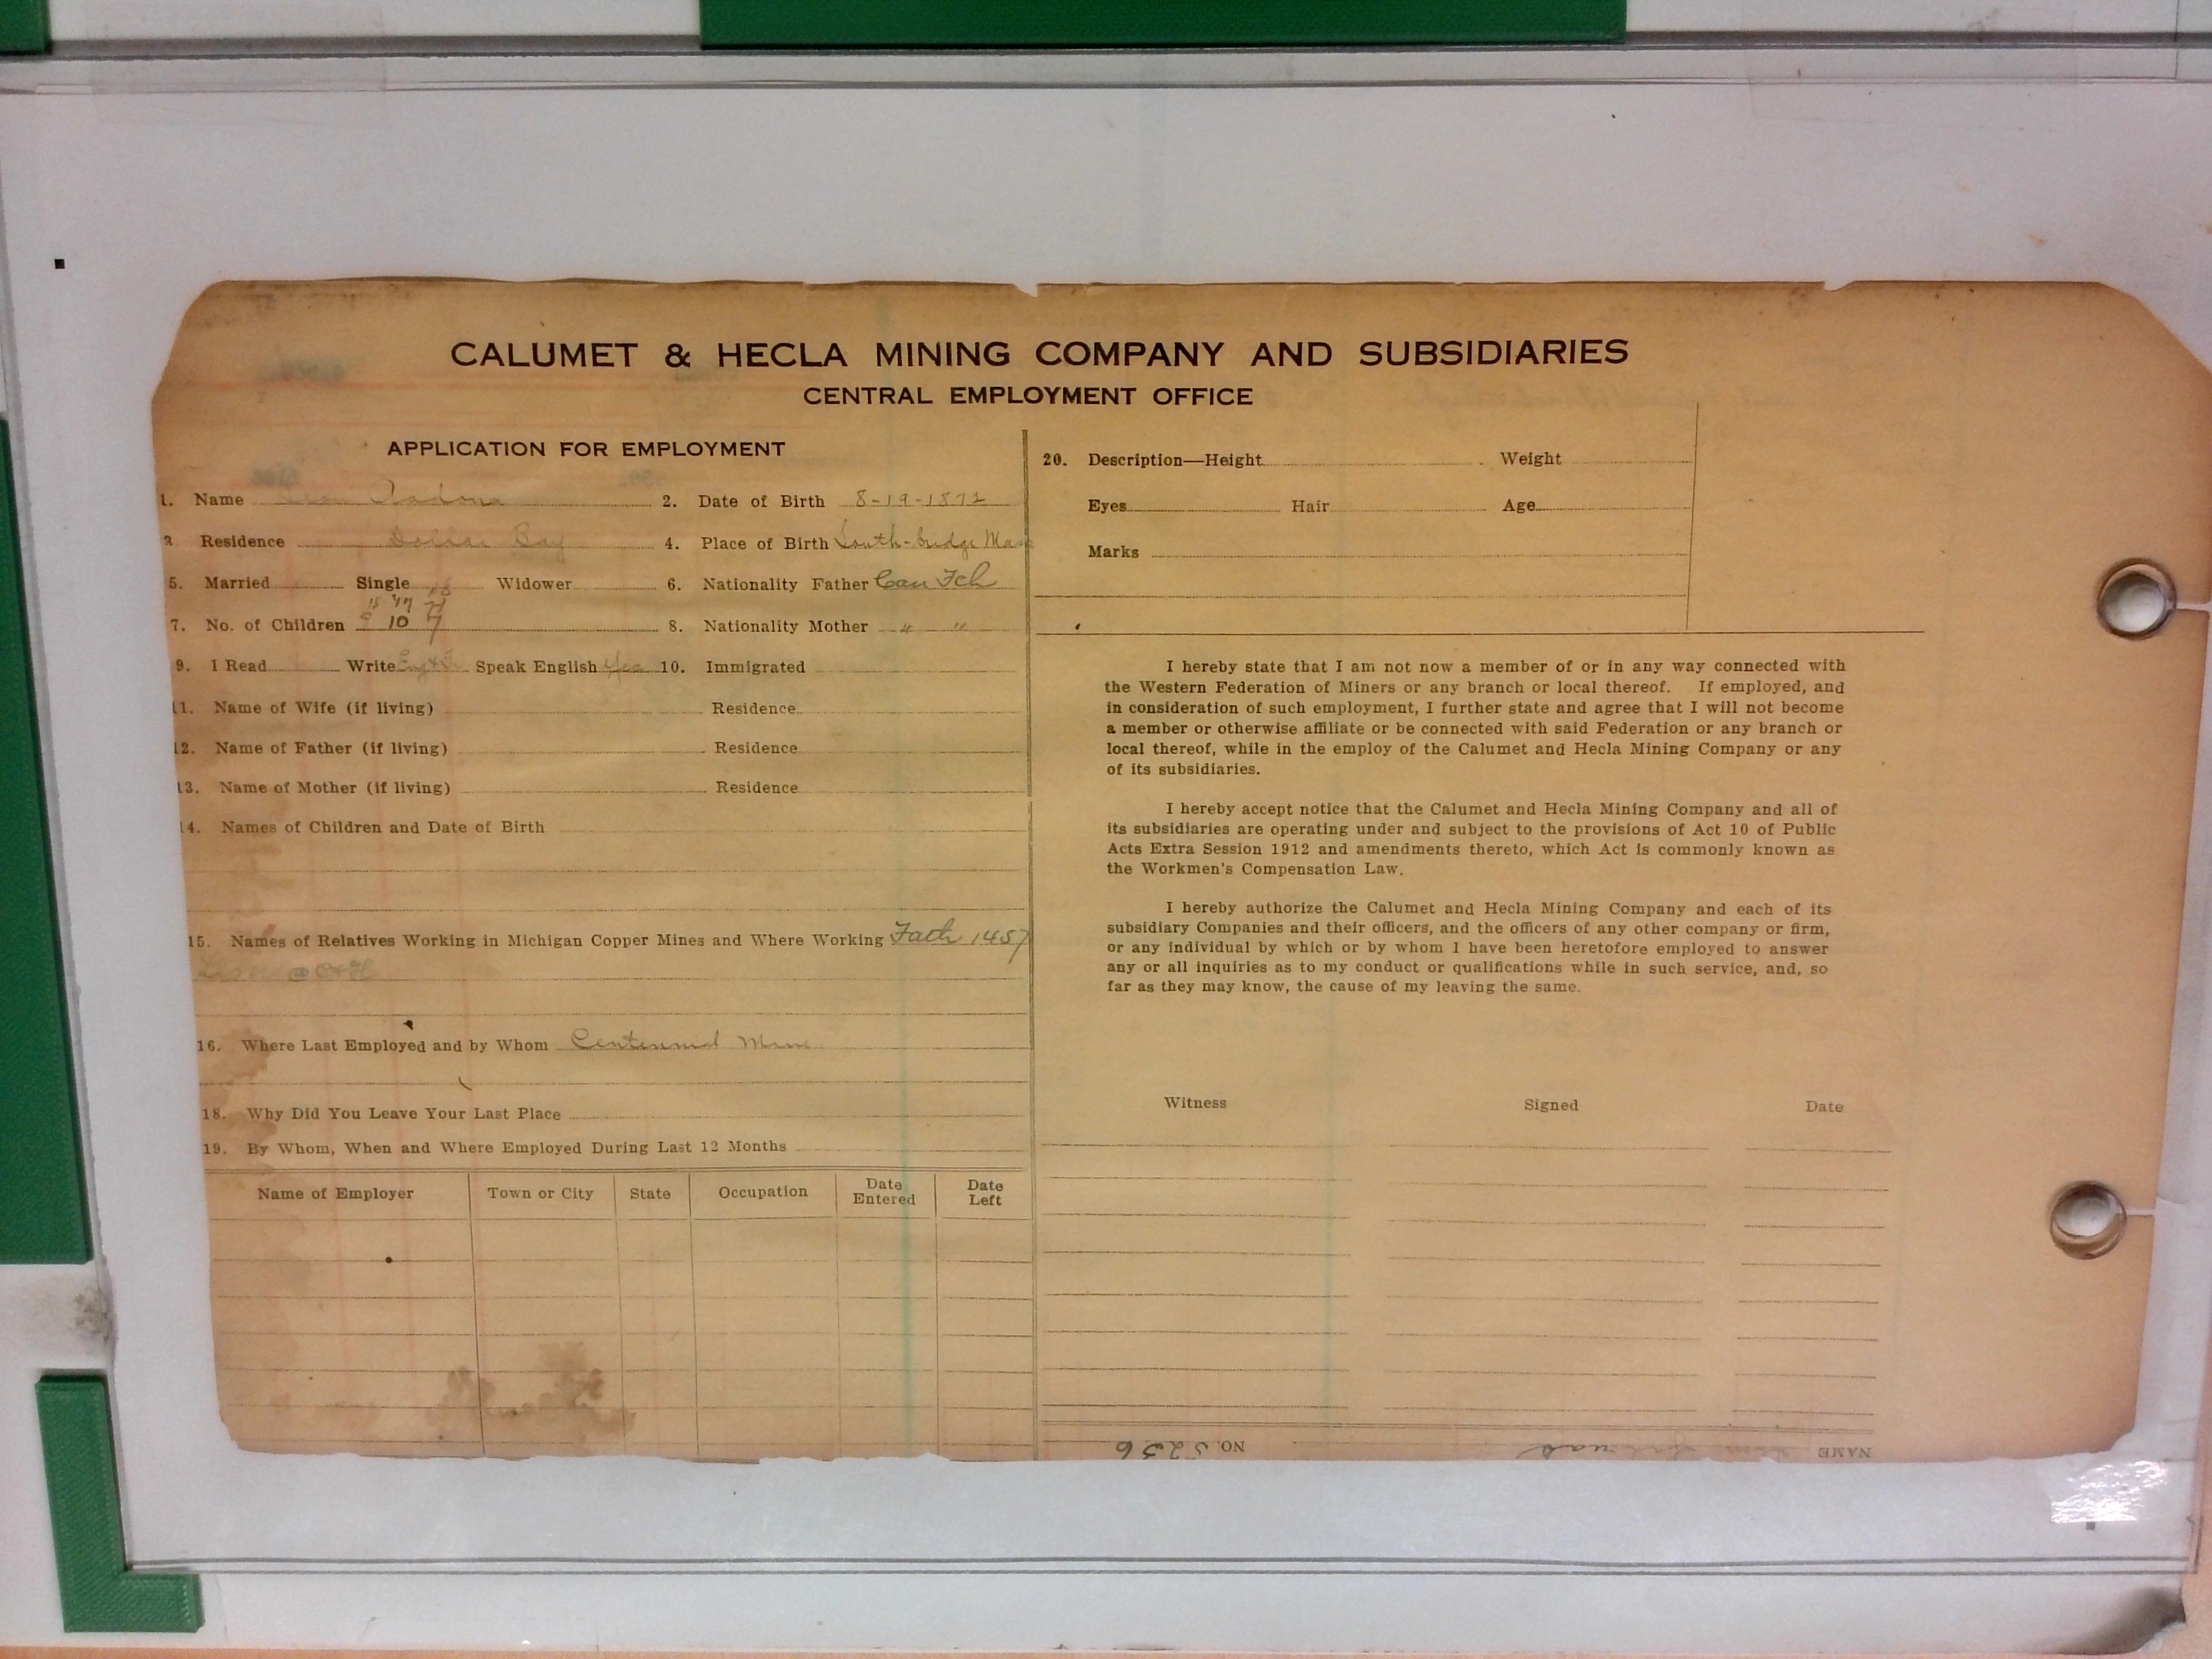 CALUMET & HECLA MINING COMPANY AND SUBSIDIARIES
CENTRAL EMPLOYMENT OFFICE
APPLICATION FOR EMPLOYMENT
1. Name 2. Date of Birth 8-19-1871
3. Residence Dollar Bay 4. Place of Birth South-bridge Mass
5. Married Single Widower 6. Nationality Father Can Fch
15 17
7. No. of Children 9 10 7 8. Nationality Mother " "
9. I Read Write Speak English Yes 10. Immigrated
11. Name of Wife (if living) Residence
12. Name of Father (if living) Residence
13. Name of Mother (if living) Residence
14. Names of Children and Date of Birth
15. Names of Relatives Working in Michigan Copper Mines and Where Working Fath 1457
@ C&H
16. Where Last Employed and by Whom Centennial Mine
18. Why Did You Leave Your Last Place
19. By Whom, When and Where Employed During Last 12 Months
Name of Employer Town or City State Occupation Date Entered Date Left
20. Description—Height Weight
Eyes Hair Age
Marks
I hereby state that I am not now a member of or in any way connected with
the Western Federation of Miners or any branch or local thereof. If employed, and
in consideration of such employment, I further state and agree that I will not become
a member or otherwise affiliate or be connected with said Federation or any branch or
local thereof, while in the employ of the Calumet and Hecla Mining Company or any
of its subsidiaries.
I hereby accept notice that the Calumet and Hecla Mining Company and all of
its subsidiaries are operating under and subject to the provisions of Act 10 of Public
Acts Extra Session 1912 and amendments thereto, which Act is commonly known as
the Workmen's Compensation Law.
I hereby authorize the Calumet and Hecla Mining Company and each of its
subsidiary Companies and their officers, and the officers of any other company or firm,
or any individual by which or by whom I have been heretofore employed to answer
any or all inquiries as to my conduct or qualifications while in such service, and, so
far as they may know, the cause of my leaving the same.
Witness Signed Date
NAME NO. 5236